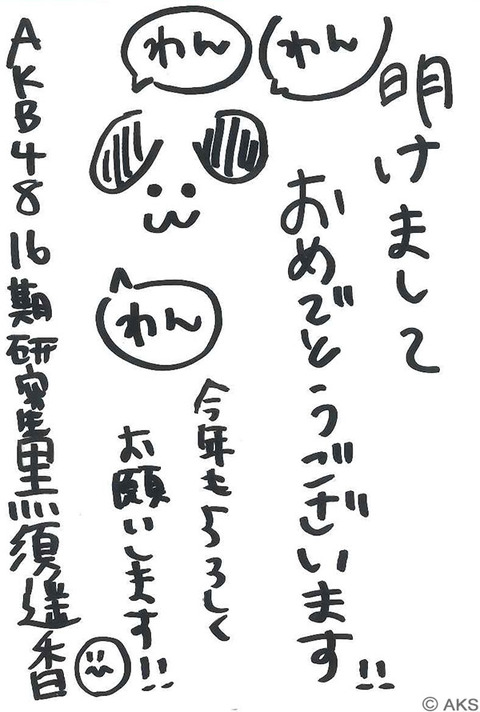 明けまして
おめでとうございます!!
わん
わん
わん
今年もよろしく
お願いします!!
AKB48 16期研究生黒須遥香
© AKS